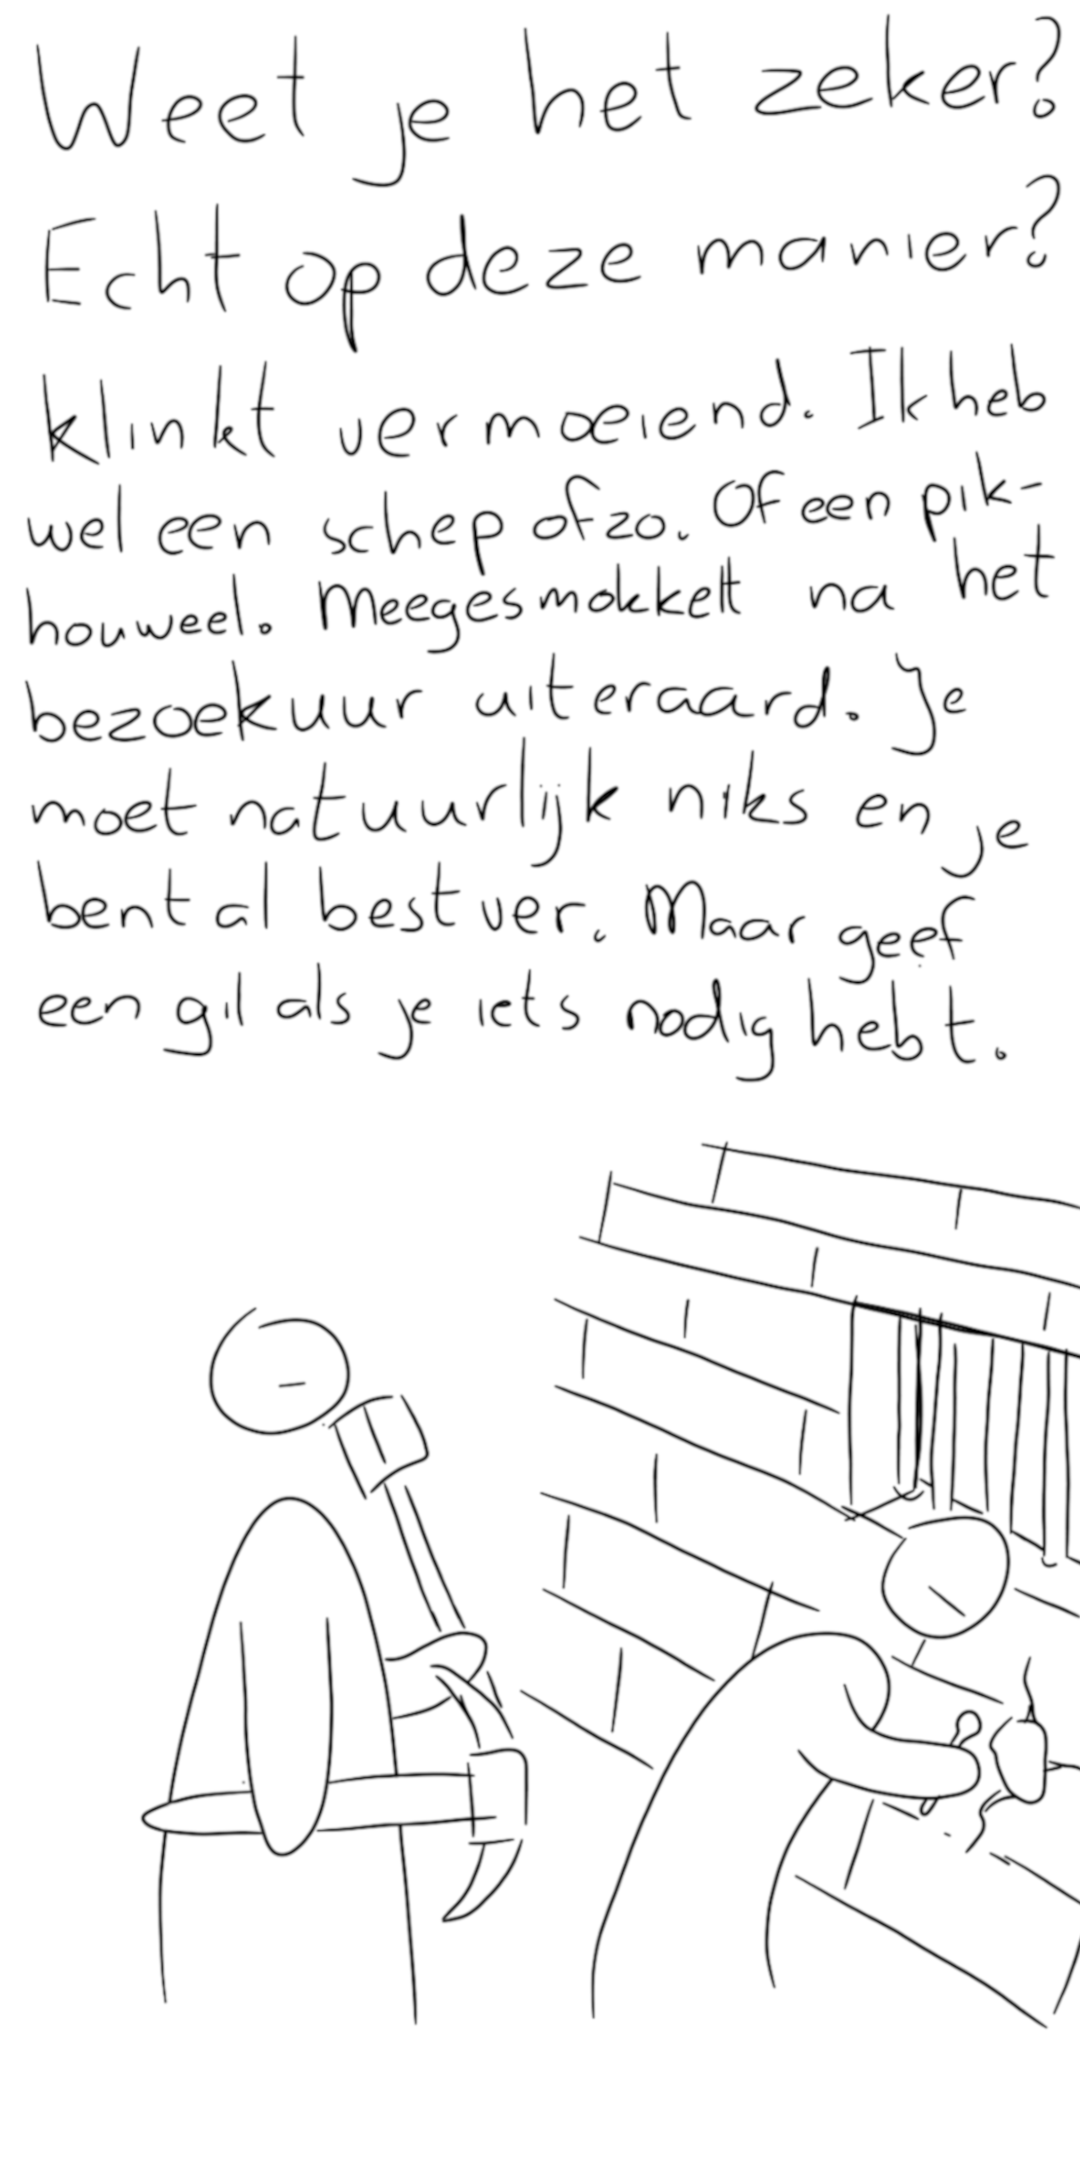 Weet je het zeker?
Echt op deze manier?
Klinkt vermoeiend. Ik heb
wel een schep ofzo. Of een pik-
houweel. Meegesmokkelt na het
bezoekuur uiteraard. Je
moet natuurlijk niks en je
bent al best ver. Maar geef
een gil als je iets nodig hebt.